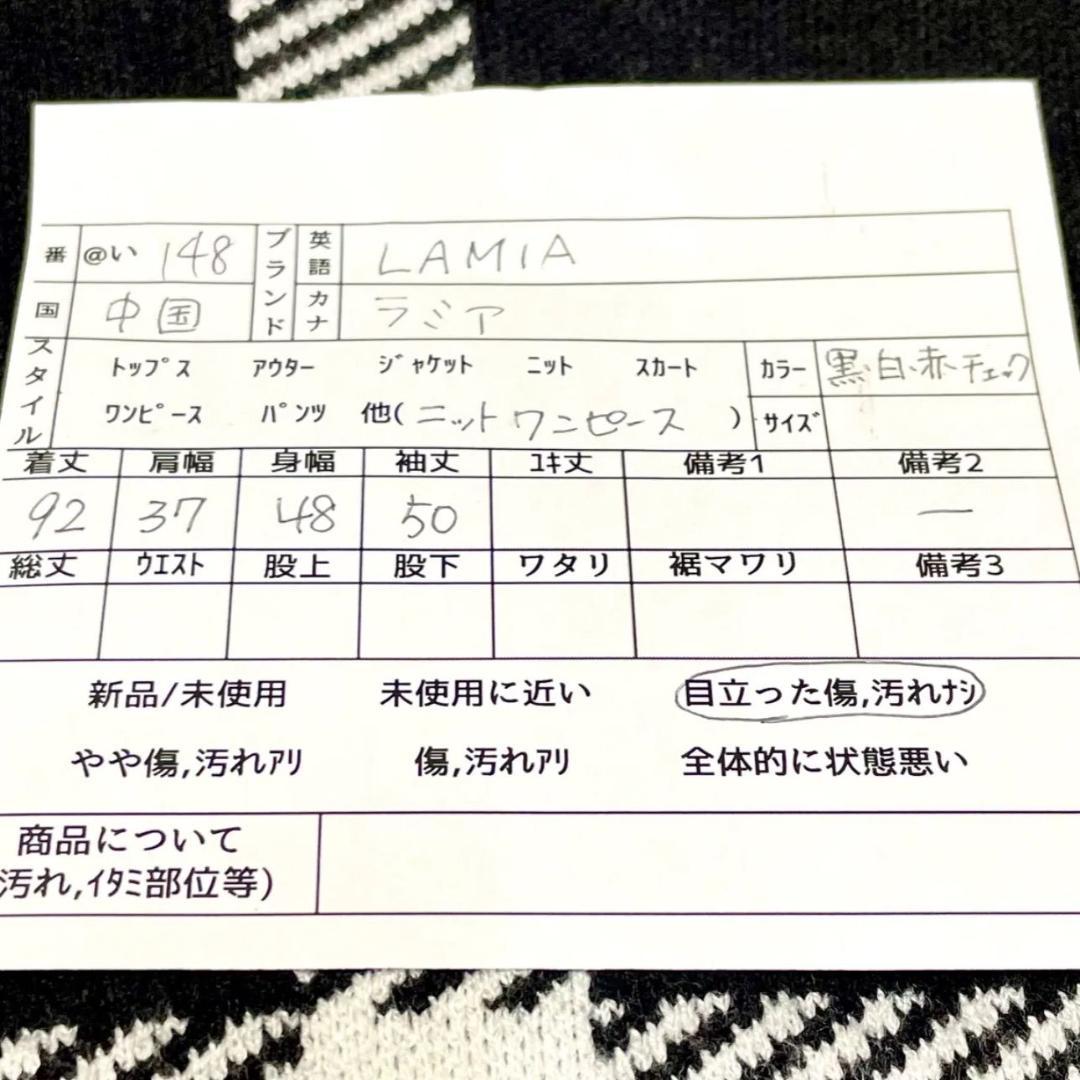 番 @い 148 ブランド 英語 LAMIA
国 中国 カナ ラミア
スタイル トップス アウター ジャケット ニット スカート カラー 黒、白、赤チェック
ワンピース パンツ 他(ニットワンピース) サイズ
着丈 肩幅 身幅 袖丈 ユキ丈 備考1 備考2
92 37 48 50 ー
総丈 ウエスト 股上 股下 ワタリ 裾マワリ 備考3
新品/未使用 未使用に近い 目立った傷,汚れナシ
やや傷,汚れアリ 傷,汚れアリ 全体的に状態悪い
商品について
汚れ,イタミ部位等)